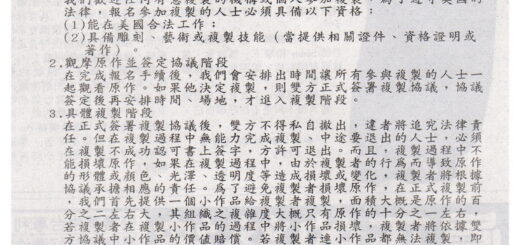 法律，報名參加複製的人士必須具備以下資格：
(1)能在美國合法工作；
(2)具備雕刻、藝術或複製技能（當提供相關證件、資格證明或
著作）。
2.觀摩原作並簽定協議階段
在完成報名手續後，我們會安排出時間讓所有參與複製的人士一
起觀看原作。如果他決定複製，則雙方正式簽署複製協議，協議
簽定後再安排時間、場地，才進入複製階段。
3.具體複製階段
在正式簽署複製協議後，雙方不得私自撤出，違者將追究法律責
任。但在複製過程中無能力完成複製、中途要退出的人士，必須
在複製不成功認可書上簽字，方許可退出。而且，複製人士不
能損壞原作，如果在複製過程中，由於複製者的行為而導致原作
的形體或顏色、光澤、透明度等造成損壞或變化，複製者將根據
協議承擔相應的責任。為了避免複製者損壞原作，在正式複製前
，我們首先提供一個小作品給複製者複製，面積大概是原作的百
分之二左右大，其組織之複雜度大概只有原作的十分之一左右，
若複製者在小作品的複製過程中將小作品損壞，複製者將依據雙
方協議中小作品的價值賠償。若複製者連小作品都無法複製，即